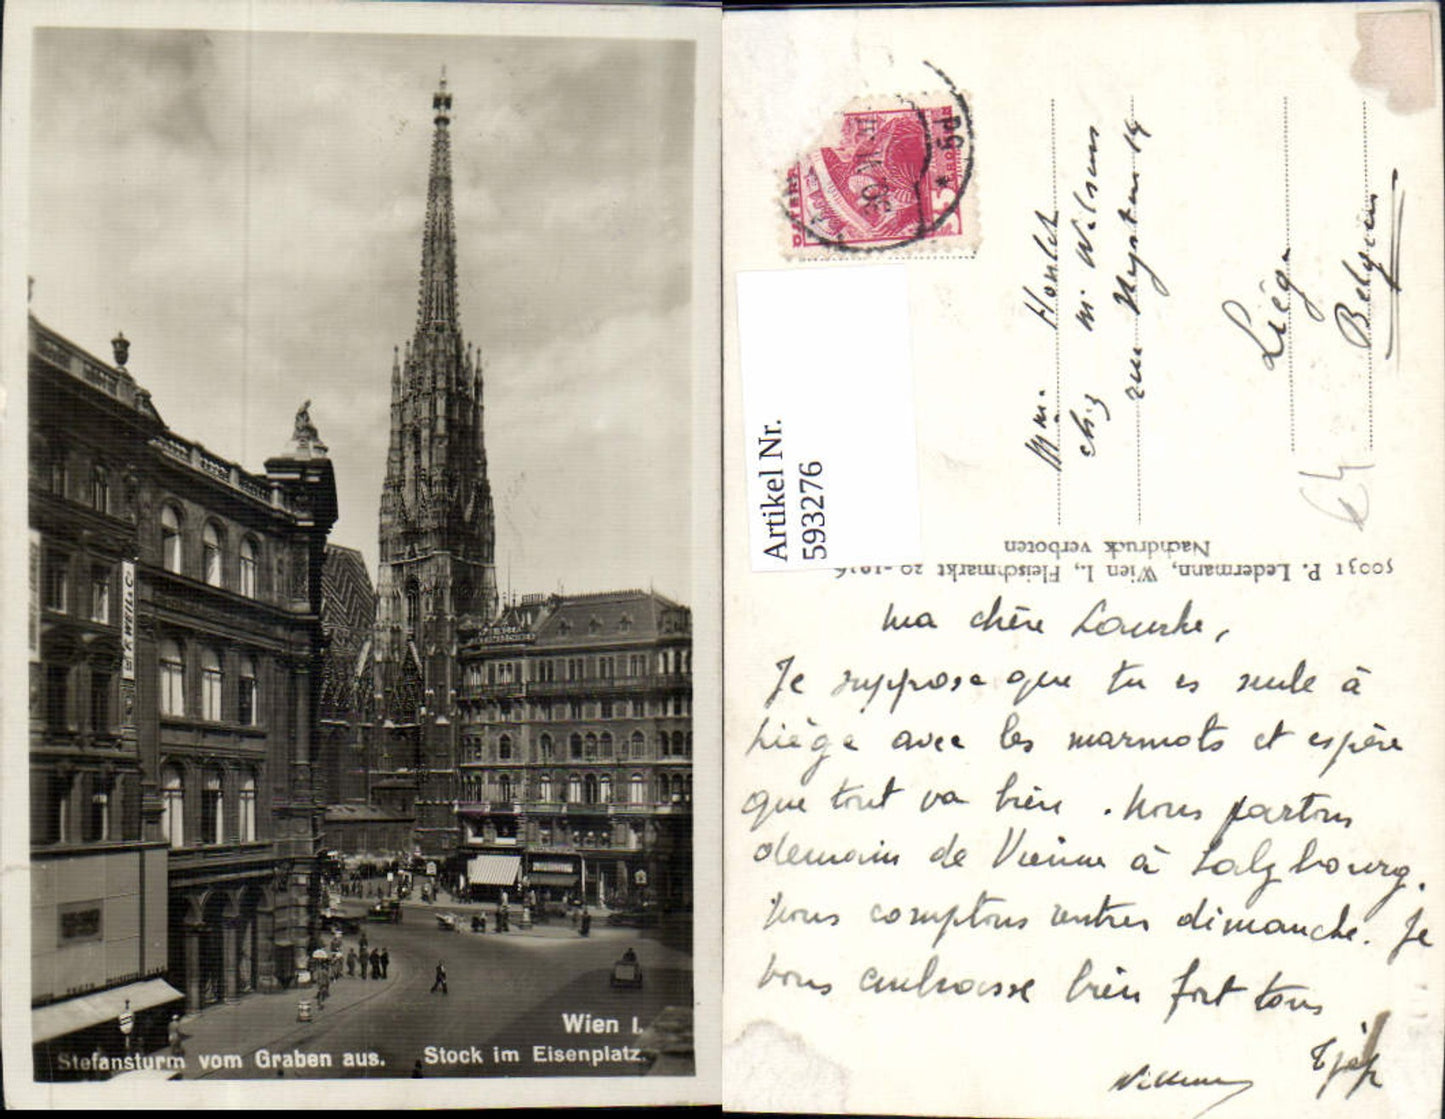 K. WEIL & Co
Wien I.
Stefansturm vom Graben aus. Stock im Eisenplatz.
Artikel Nr.
593276
Mm. Houlet
chez M. Wilsens
rue 14
Liège
Belgique
50031 P. Ledermann, Wien I., Fleischmarkt 20 - 1936
Nachdruck verboten
Ma chère
Je suppose que tu es seule à
Liège avec les marmots et espère
que tout va bien. Nous partons
demain de Vienne à Salzbourg.
Nous comptons rentrer dimanche. Je
vous embrasse bien fort tous